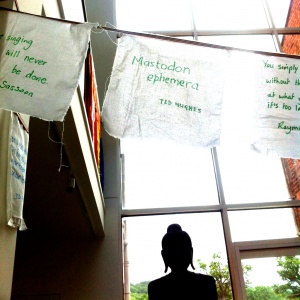 singing
will never
be done.
Sassoon
Mastodon
ephemera
TED HUGHES
You simply
without th
at what
it's too l
Raymo